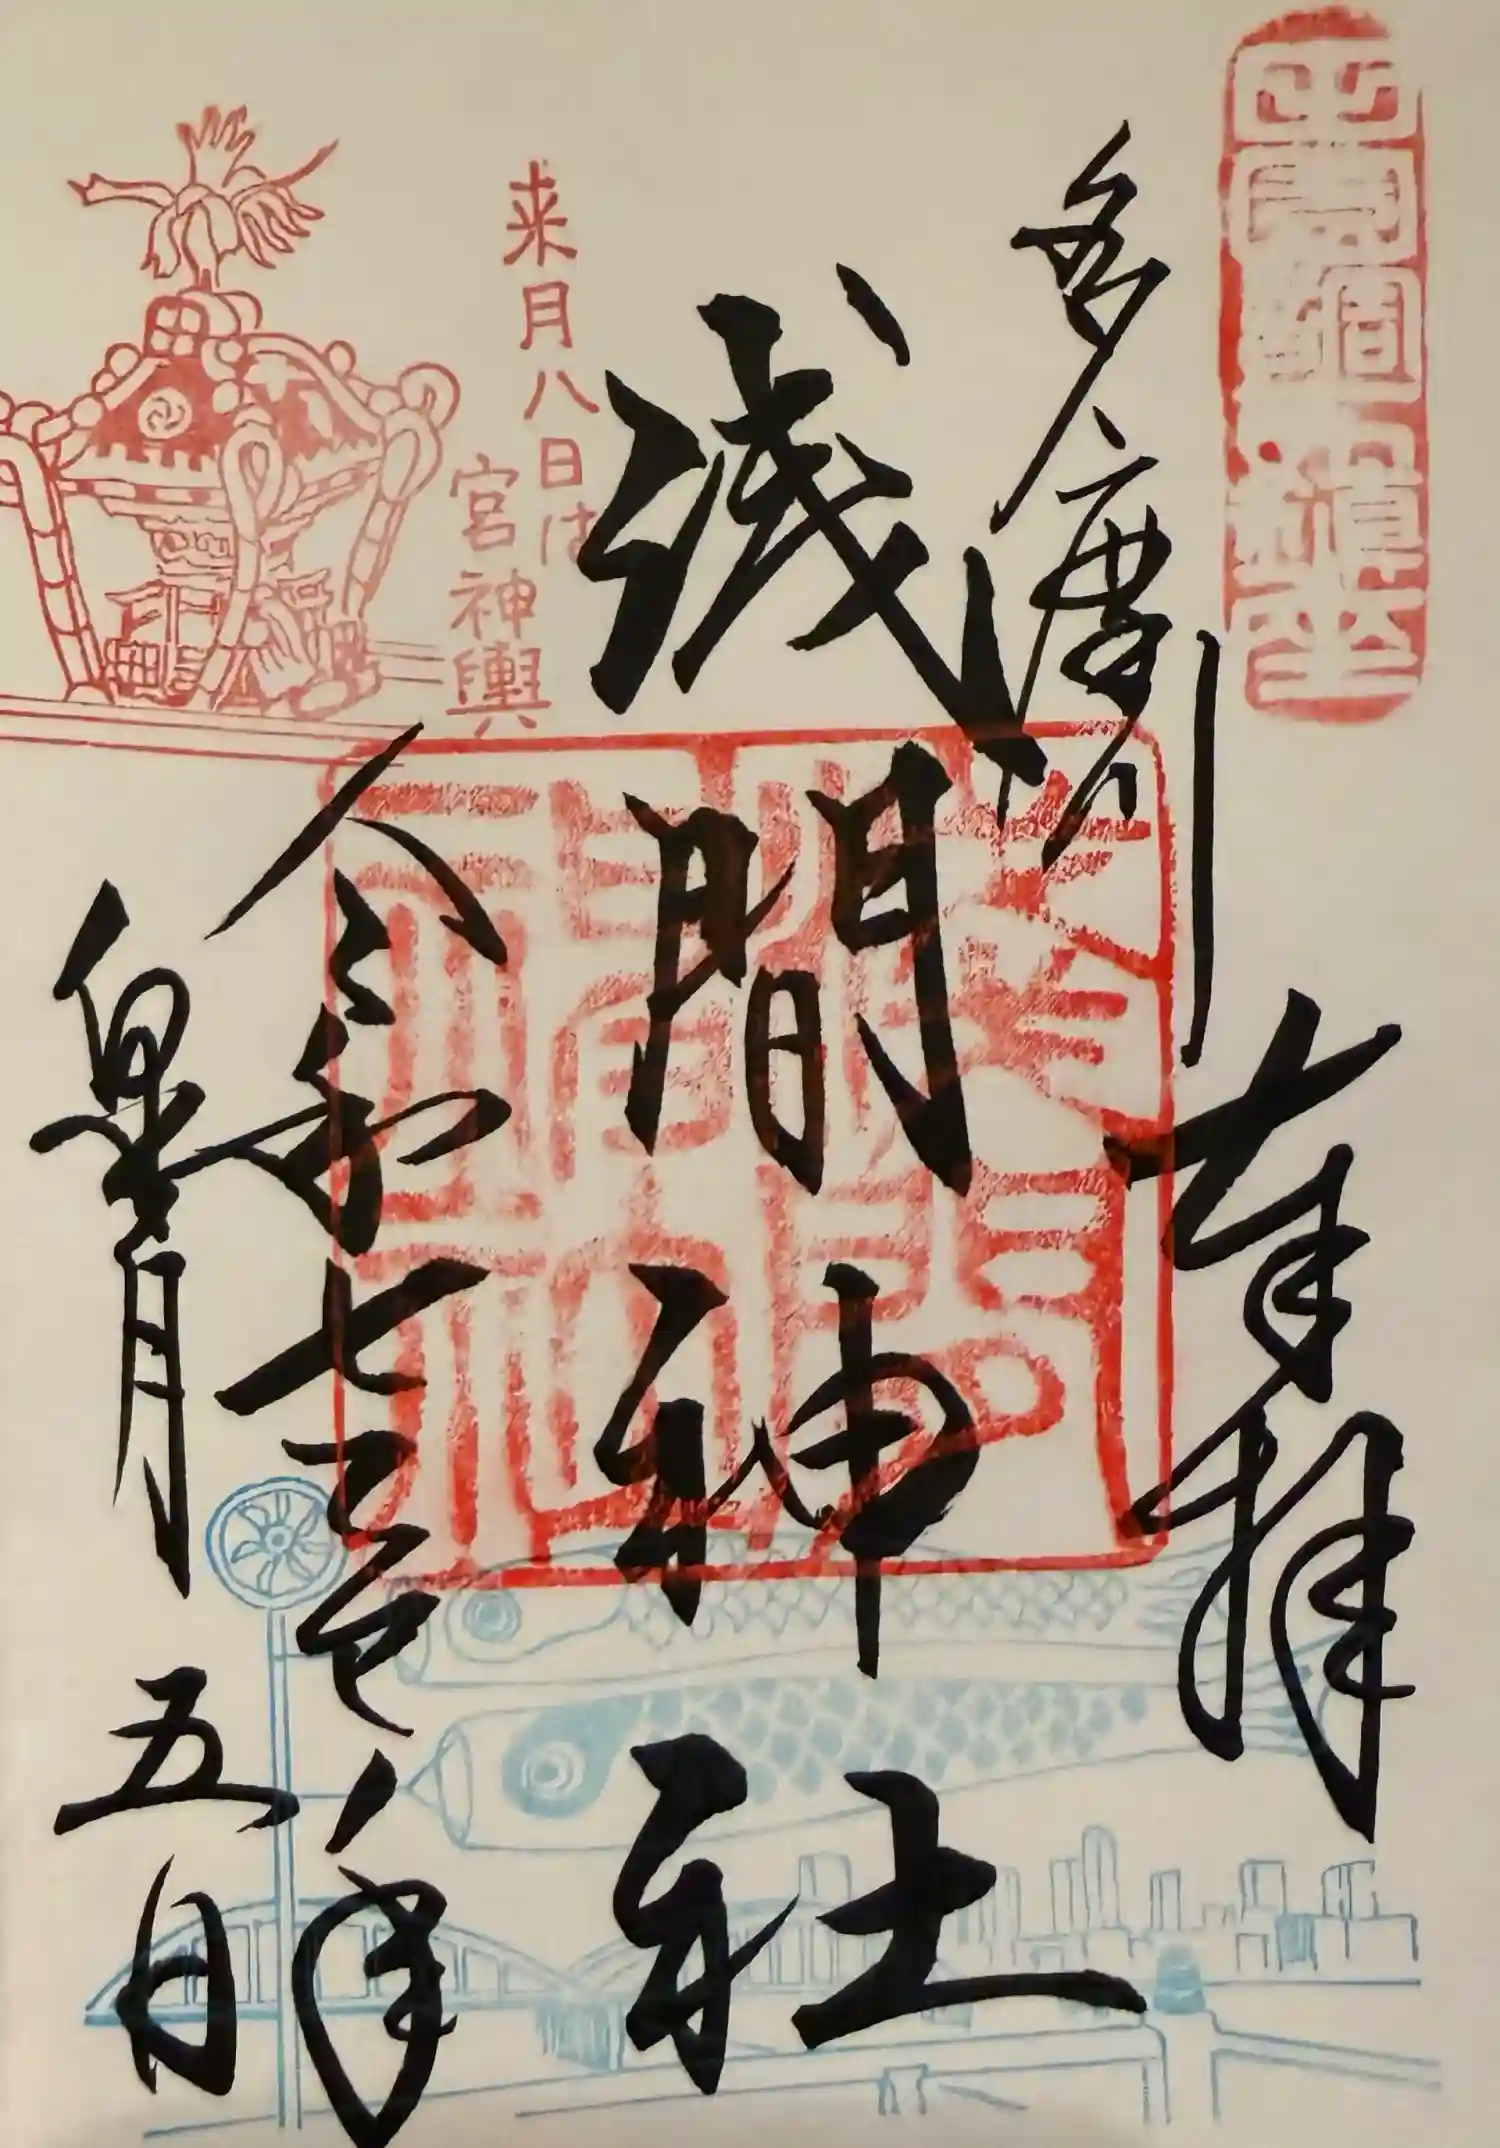 奉拝
多摩川
浅間神社
来月八日は
宮神輿
令和七乙巳年
皐月五日